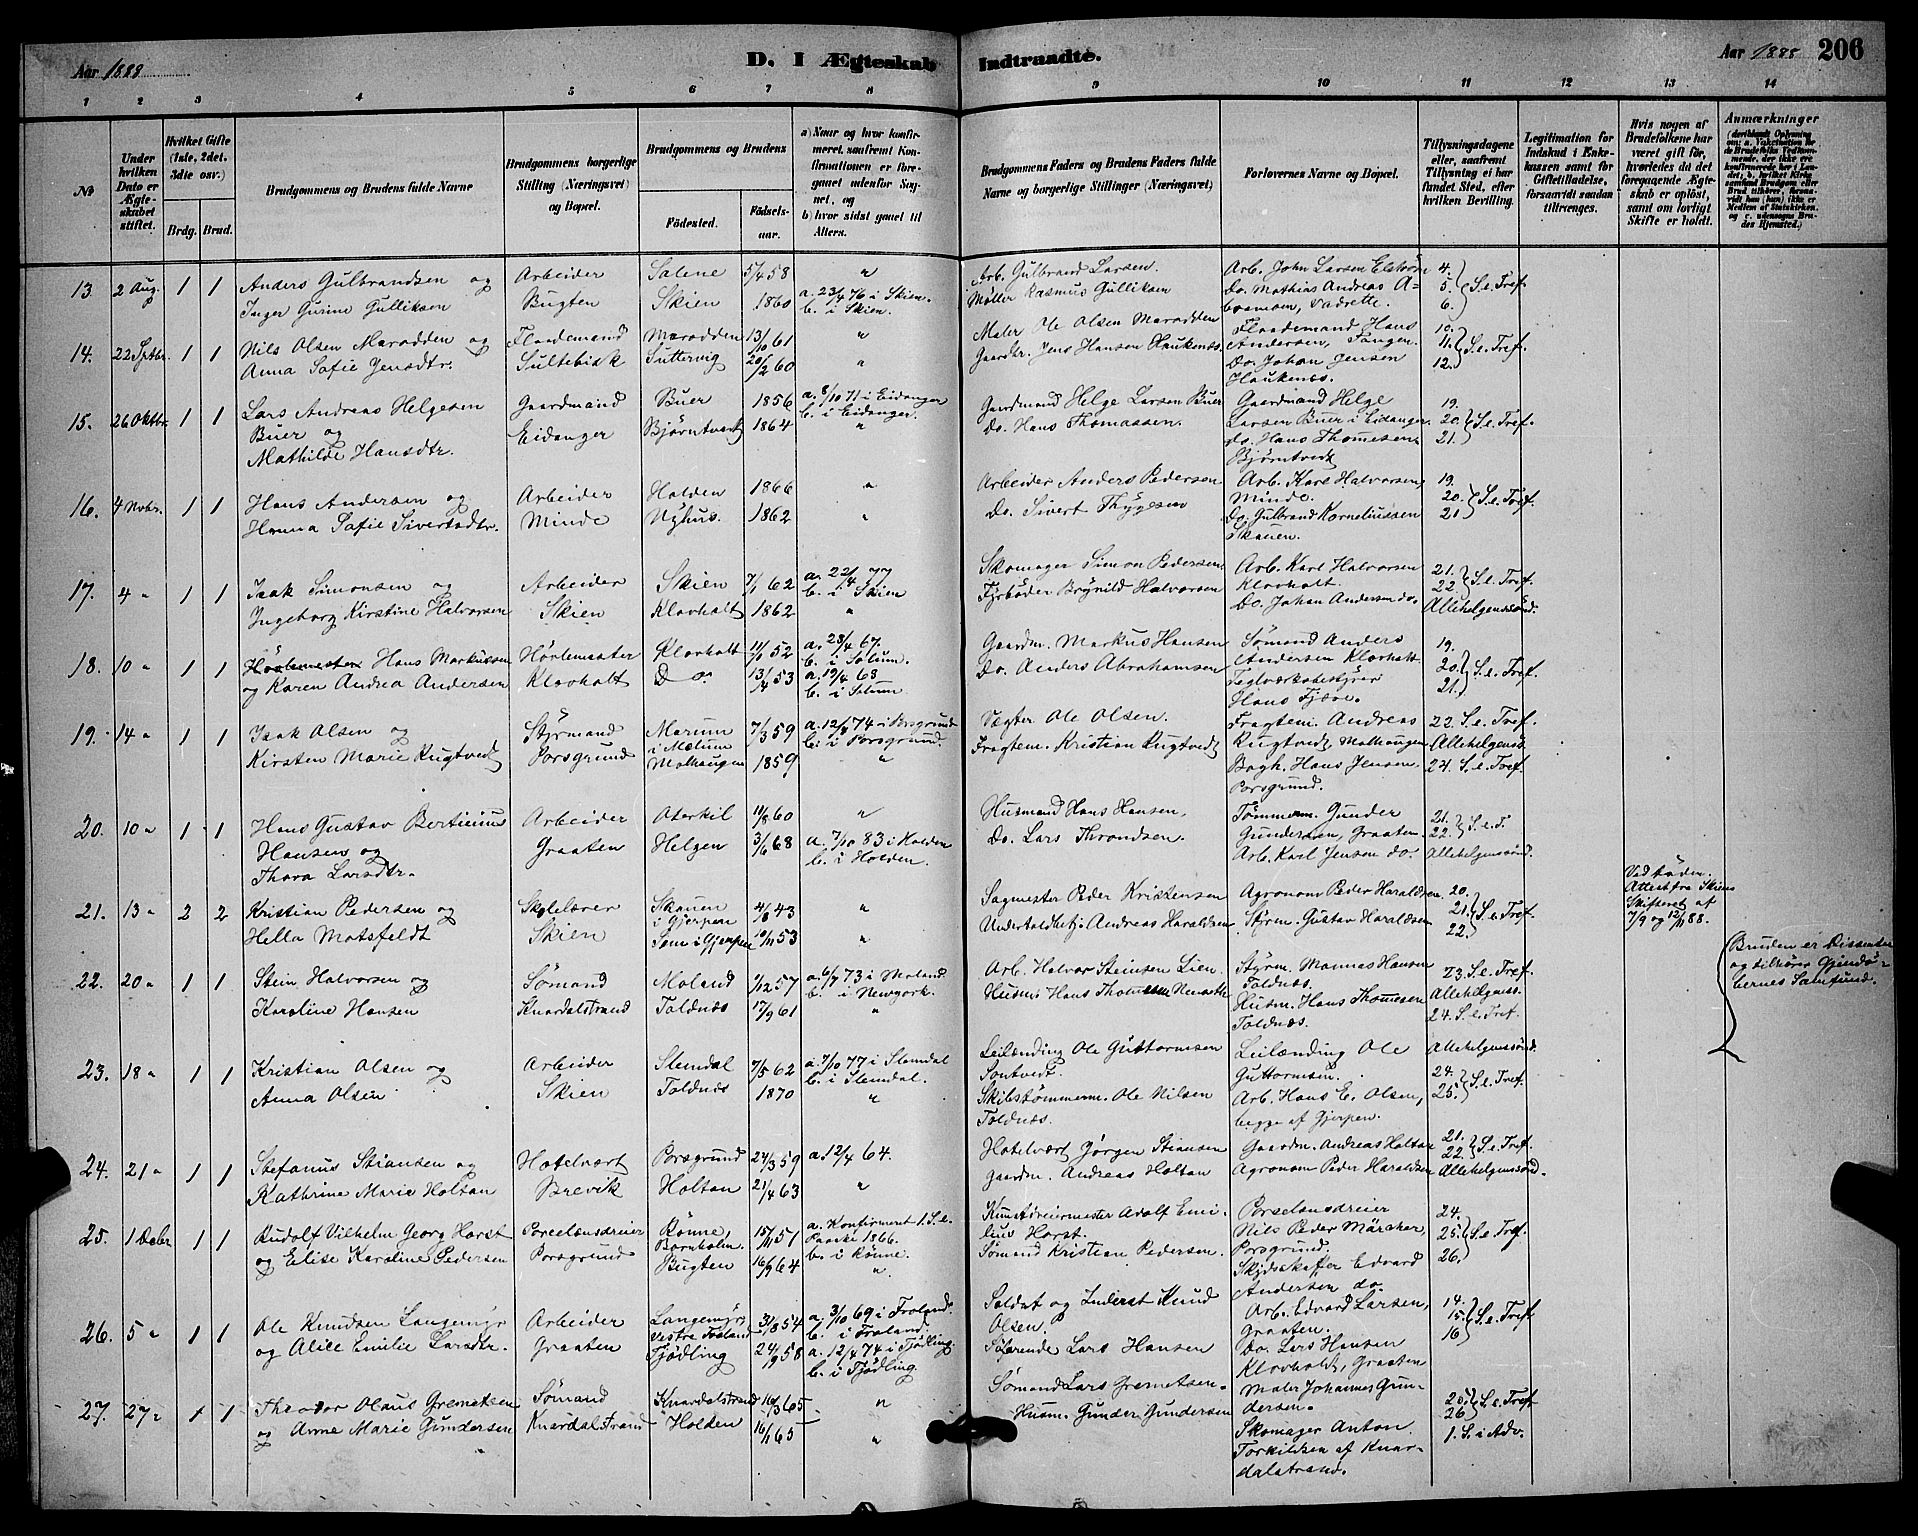 Aar 1888
D. I Ægteskab Indtraadte.
Aar 1888 206
1 2 3 4 5 6 7 8 9 10 11 12 13 14
No
Under hvilken Dato er Ægteskabet stiftet.
Hvilket Gifte (1ste, 2det, 3die osv.)
Brdg. Brud.
Brudgommens og Brudens fulde Navne
Brudgommens borgerlige Stilling (Næringsvei) og Bopæl.
Brudgommens og Brudens
Fødested. Fødselsaar.
a) Naar og hvor konfirmeret, saafremt Konfirmationen er foregaaet udenfor Sognet, og
b) hvor sidst gaaet til Alters.
Brudgommens Faders og Brudens Faders fulde Navne og borgerlige Stillinger (Næringsvei)
Forlovernes Navne og Bopæl.
Tillysningsdagene eller, saafremt Tillysning ei har fundet Sted, efter hvilken Bevilling.
Legitimation for Indskud i Enkekassen samt for Giftetilladelse, forsaavidt saadan tiltrænges.
Hvis nogen af Brudefolkene har været gift før, hvorledes da det foregaaende Ægteskab er opløst, samt om lovligt Skifte er holdt.
Anmærkninger
13. 2 Aug. 1 1 Anders Gulbrandsen og Arbeider Salene 5/4 58 "
Inger Gurine Gulliksen Bugten Skien 1860 a. 23/4 76 i Skien. b. i Skien.
Arb. Gulbrand Larsen. Arb. John Larsen Elstrøm 4.
Møller Rasmus Gulliksen Do. Mathias Andreas A- 5. S. e. Tref.
bramsen, Vadrette. 6.
14. 22 Septbr. 1 1 Nils Olsen Maradden og Flaademand Maradden 13/10 61 "
Anna Sofie Jensdtr. Sultebisk Suttervig 20/2 60 "
Maler Ole Olsen Maradden Flaademand Hans 10.
Gaardbr. Jens Hansen Haukenes. Andersen, Tangen. 11. S. e. Tref.
Do. Johan Jensen 12.
Haukenes.
15. 26 Oktbr. 1 1 Lars Andreas Helgesen Gaardmand Buer 1856 a. 8/10 71 i Eidanger b. i Eidanger.
Buer og Eidanger Bjørntvedt 1864 "
Mathilde Hansdtr.
Gaardmand Helge Larsen Buer Gaardmand Helge 19.
Do. Hans Thomassen. Larsen Buer i Eidanger 20. S. e. Tref.
do. Hans Thomesen 21.
Bjørntvedt
16. 4 Novbr. 1 1 Hans Andersen og Arbeider Holden 1866 "
Hanna Sofie Sivertsdtr. Minde Nyhus. 1862 "
Arbeider Anders Pedersen Arb. Karl Halvorsen, 19.
Do. Sivert Thygesen Minde. 20. S. e. Tref.
Do. Gulbrand Korneliussen 21
Skauen.
17. 4 " 1 1 Isak Simonsen og Arbeider Skien 7/1 62 a. 22/4 77 b. i Skien
Ingeborg Kirstine Halvorsen Skien Klovholt 1862 "
Skomager Simon Pedersen Arb. Karl Halvorsen 21.
Fyrbøder Brynild Halvorsen Klovholt. 22. S. e. Tref.
Do. Johan Andersen do. Allehelgenssønd.
18. 10 " 1 1 Hans Markussen Klovholt 11/1 52 a. 28/4 67. b. i Solum.
og Karen Andrea Andersen Klovholt Do. 13/4 53 a. 19/4 68 b. i Solum
Gaardm. Markus Hansen Sømand Anders 19.
Do. Anders Abrahamsen Andersen Klovholt. 20. S. e. Tref.
Teglværksbestyrer 21.
Hans Fjære.
19. 14 " 1 1 Isak Olsen og Styrmand Marum i 7/3 59 a. 12/4 74 i Porsgrund b. i Porsgrund.
Kirsten Marie Rugtvedt Porsgrund Molhaugen 1859 "
Vægter Ole Olsen. Fragtem. Andreas 22. S. e. Tref.
Fragtem. Kristian Rugtvedt Rugtvedt, Molhaugen Allehelgenss.
Bogh. Hans Jensen, 24. S. e. Tref.
Porsgrund.
20. 10 " 1 1 Hans Gustav Bertinius Arbeider Oterkil 11/8 60 "
Hansen og Graaten Helgen 3/6 68 a. 7/10 83 i Holden b. i Holden.
Thora Larsdtr.
Husmand Hans Hansen. Tømmerm. Gunder 21.
Do. Lars Throndsen. Gundersen, Graaten. 22. S. e. T.
Arb. Karl Jensen do. Allehelgenssønd.
21. 13 " 2 2 Kristian Pedersen og Skolelærer Skauen i Gjerpen 4/8 43 "
Hella Matsfeldt Skien Sem i Gjerpen 10/11 53 "
Sagmester Peder Kristensen Agronom Peder Haraldsen 20.
Andreas Haraldsen Styrm. Gustav Haraldsen 21. S. e. Tref.
22.
Ved døden.
Attest fra Skiens
Skifteret af
7/9 og 12/11 88.
22. 20 " 1 1 Stein Halvorsen og Sømand Moland 1/12 57 a. 6/7 73 i Moland b. i Newyork.
Karoline Hansen Knardalstrand Toldnæs 17/9 61 "
Arb. Halvor Steinsen Lien. Styrm. Mannas Hansen 23. S. e. Tref.
Husm. Hans Thomesen Toldnæs. Allehelgenss.
Husm. Hans Thomesen 24. S. e. Tref.
Toldnæs.
Bruden er Dissenter
og tilhører Gjendø-
bernes Samfund.
23. 18 " 1 1 Kristian Olsen og Arbeider Slemdal 7/5 62 a. 7/10 77 i Slemdal b. i Slemdal.
Anna Olsen Skien Toldnæs 1870 "
Leilænding Ole Guttormsen Leilænding Ole Allehelgenssønd.
Sontvedt. Guttormsen. 24.
Skibstømmerm. Ole Nilsen Arb. Hans E. Olsen, 25. S. e. Tref.
Toldnæs. begge af Gjerpen.
24. 21 " 1 1 Stefanus Stiansen og Hotelvært Porsgrund 24/3 59 a. 12/4 64.
Kathrine Marie Holtan Brevik Holtan 21/4 63 "
Hotelvært Jørgen Stiansen Gaardm. Andreas Holtan 21.
Gaardm. Andreas Holtan Agronom Peder Haraldsen 22. S. e. Tref.
Allehelgenssønd.
25. 1 Debr 1 1 Rudolf Vilhelm Georg Horst Porcelænsdreier Rønne, Bornholm. 15/11 57 a. Konfirmeret 1. S. e. Paaske 1866. b. i Rønne.
og Elise Karoline Pedersen Porsgrund Bugten 16/9 64 "
Kunstdreiermester Adolf Emi- Porselænsdreier 24.
lius Horst. Nils Peder Märcher 25. S. e. Tref.
Sømand Kristian Pedersen. Porsgrund. 26.
Skydsskaffer Edvard
Andersen do.
26. 5 " 1 1 Ole Knudsen Langemyr Arbeider Langemyr, 31/8 54 a. 3/10 69 i Froland b. i Froland.
og Alice Emilie Larsdtr. Graaten Tjødling 24/9 58 a. 12/4 74 i Tjødling b. i Tjødling
Soldat og Inderst Knud Arb. Edvard Larsen, 14.
Olsen. Graaten. 15. S. e. Tref
Søfarende Lars Hansen Do. Lars Hansen 16
Klovholt, Graaten
27. 27 " 1 1 Theodor Olaus Grematsen Sømand Knardalstrand 16/3 65 "
og Anne Marie Gundersen Knardalstrand Holden 16/11 65 "
Sømand Lars Grematsen. Maler Johannes Gun- 25. S. e. Tref
Husm. Gunder Gundersen dersen. 26
Skomager Anton 1. S. i Adv.
Torkildsen af Knar-
dalstrand.